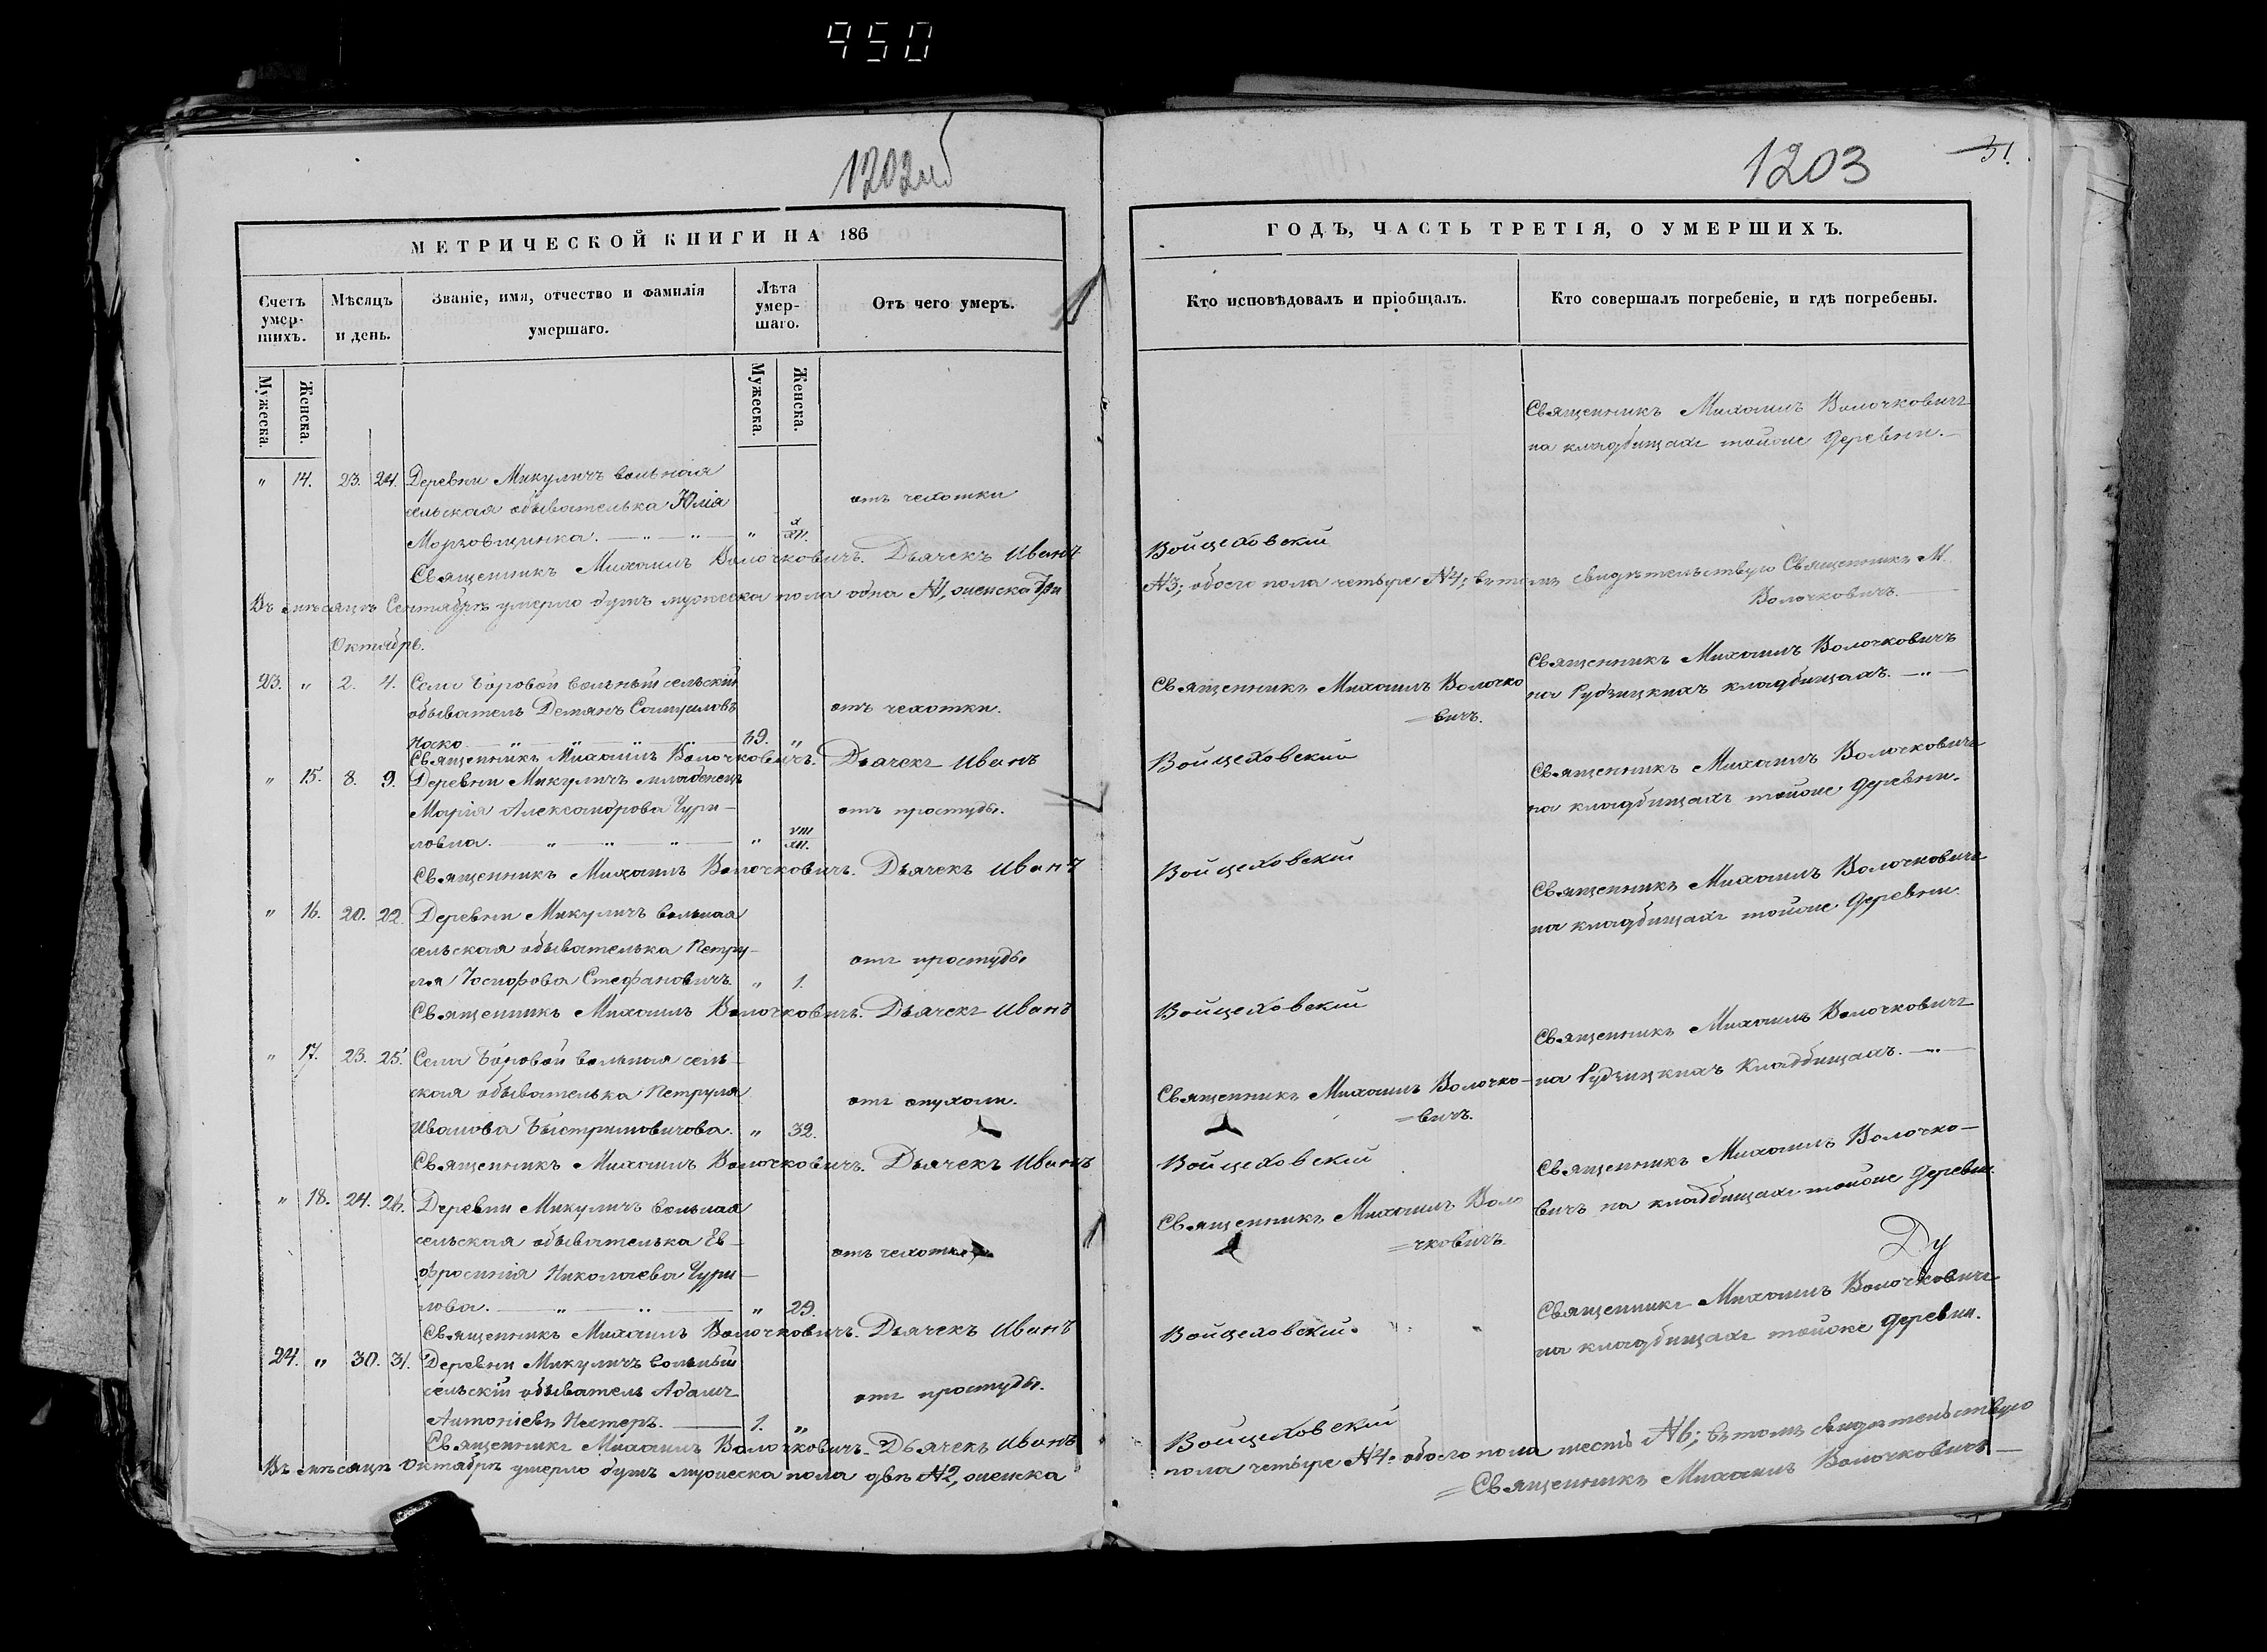 950
1202об
1203
31.
МЕТРИЧЕСКОЙ КНИГИ НА 186
ГОДЪ, ЧАСТЬ ТРЕТІЯ, О УМЕРШИХЪ.
Счетъ умер- шихъ.
Мѣсяцъ и день.
Званіе, имя, отчество и фамилія умершаго.
Лѣта умер- шаго.
Отъ чего умеръ.
Кто исповѣдовалъ и пріобщалъ.
Кто совершалъ погребеніе, и гдѣ погребены.
Мужеска.
Женска.
Мужеска.
Женска.
Священникъ Михаилъ Волочковичъ
на кладбищахъ тойже деревни.
" 14. 23. 24. Деревни Микуличъ вольная
сельская обывателька Юлія
отъ чехотки
Морзовщинка. " XII.
Священникъ Михаилъ Волочковичъ. Дьячекъ Иванъ Войцеховскій
Въ мѣсяцѣ Сентябрѣ умерло бутъ мужеска пола одна №1, женска три №3; обоего пола четыре №4; въ томъ свидѣтельствую Священникъ М.
Волочковичъ.
Октябрь.
23. " 2. 4. Села Боровой вольный сельскій
обыватель Демянъ Самуиловъ
отъ чехотки.
"
Священникъ Михаилъ Волочко
=вичъ.
Священникъ Михаилъ Волочковичъ
на Рудзицкихъ кладбищахъ.
Священникъ Михаилъ Волочковичъ. Дьячекъ Иванъ Войцеховскій
" 15. 8. 9. Деревни Микуличъ младенецъ
Марія Александрова Чури-
отъ простуды.
ловна. " VIII XII.
Священникъ Михаилъ Волочковичъ
на кладбищахъ тойже деревни.
Священникъ Михаилъ Волочковичъ. Дьячекъ Иванъ Войцеховскій
" 16. 20. 22. Деревни Микуличъ вольная
сельская обывателька Петру-
отъ простуды
ля Іосифова Стефановичъ. " 1.
Священникъ Михаилъ Волочковичъ
на кладбищахъ тойже деревни.
Священникъ Михаилъ Волочковичъ. Дьячекъ Иванъ Войцеховскій
" 17. 23. 25. Села Боровой вольная сель-
ская обывателька Петруля
отъ опухоли.
Иванова Быстримовичова. " 32.
Священникъ Михаилъ Волочко-
=вичъ.
Священникъ Михаилъ Волочковичъ
на Рудзицкихъ кладбищахъ.
Священникъ Михаилъ Волочковичъ. Дьячекъ Иванъ Войцеховскій
" 18. 24. 26. Деревни Микуличъ вольная
сельская обывателька Ев-
отъ чехотки
фросинія Николаева Чури-
лова. " 29.
Священникъ Михаилъ Воло
=чковичъ.
Священникъ Михаилъ Волочко-
вичъ на кладбищахъ тойже деревни.
Ду
Священникъ Михаилъ Волочковичъ. Дьячекъ Иванъ Войцеховскій.
24. " 30. 31. Деревни Микуличъ вольный
сельскій обыватель Адамъ
отъ простуды.
Антоніевъ Нестеръ. 1. "
Священникъ Михаилъ Волочковичъ
на кладбищахъ тойже деревни.
Священникъ Михаилъ Волочковичъ. Дьячекъ Иванъ Войцеховскій
Въ мѣсяцѣ Октябрѣ умерло бутъ мужеска пола двѣ №2, женска пола четыре №4. обоего пола шесть №6; въ томъ свидѣтельствую
=Священникъ Михаилъ Волочковичъ